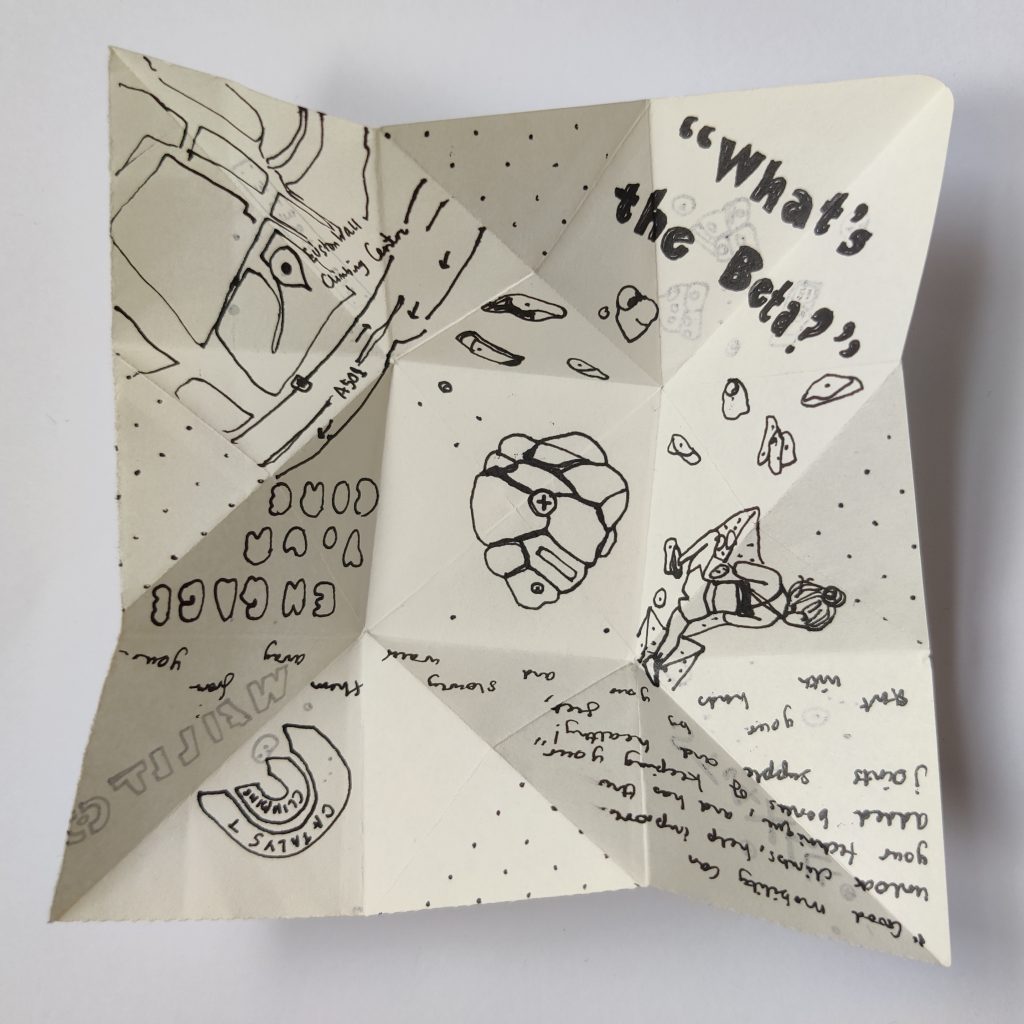 "What's
the Beta?"
Euston Wall
Climbing Center
A501
ENGAGE
YOUR
CORE
"Good mobility can
unlock climbs, help improve
your technique, and has the
added bonus of keeping your
joints supple and healthy!"
Start with your hands by your feet,
and slowly walk them away from you.
CATALYST
CLIMBING